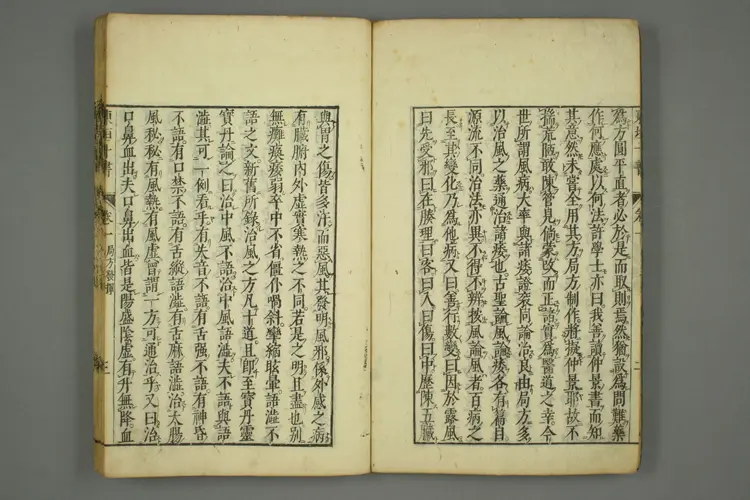 爲方圓平直者必於是而取則焉然猶設爲問難藥
作何應處以何法許學士亦曰我善讀仲景書而知
其意然未嘗全用其方局方制作將擬仲景耶故不
揣荒陋敢陳管見倘蒙改而正諸實爲醫道之幸今
世所謂風病大率與諸痿證袞同論治良由局方多
以治風之藥通治諸痿也古聖論風論痿各有篇目
源流不同治法亦異不得不辨按風論風者百病之
長至其變化乃爲他病又曰善行數變曰因於露風
曰先受邪曰在腠理曰客曰入曰傷曰中歷陳五臟
與胃之傷皆多汗而惡風其發明風邪係外感之病
有臟腑內外虛實寒熱之不同若是之明且盡也別
無癱瘓痿弱卒中不省僵仆喎斜攣縮眩暈語澁不
語之文新舊所錄治風之方凡十道且即至寶丹靈
寶丹論之曰治中風不語治中風語澁夫不語與語
澁其可一例看乎有失音不語有舌强不語有神昏
不語有口禁不語有舌縱語澁有舌麻語澁治大腸
風秘秘有風熱有風虛曾謂一方可通治乎又曰治
口鼻血出夫口鼻出血皆是陽盛陰虛有升無降血
東垣十書 卷一 局方發揮 三